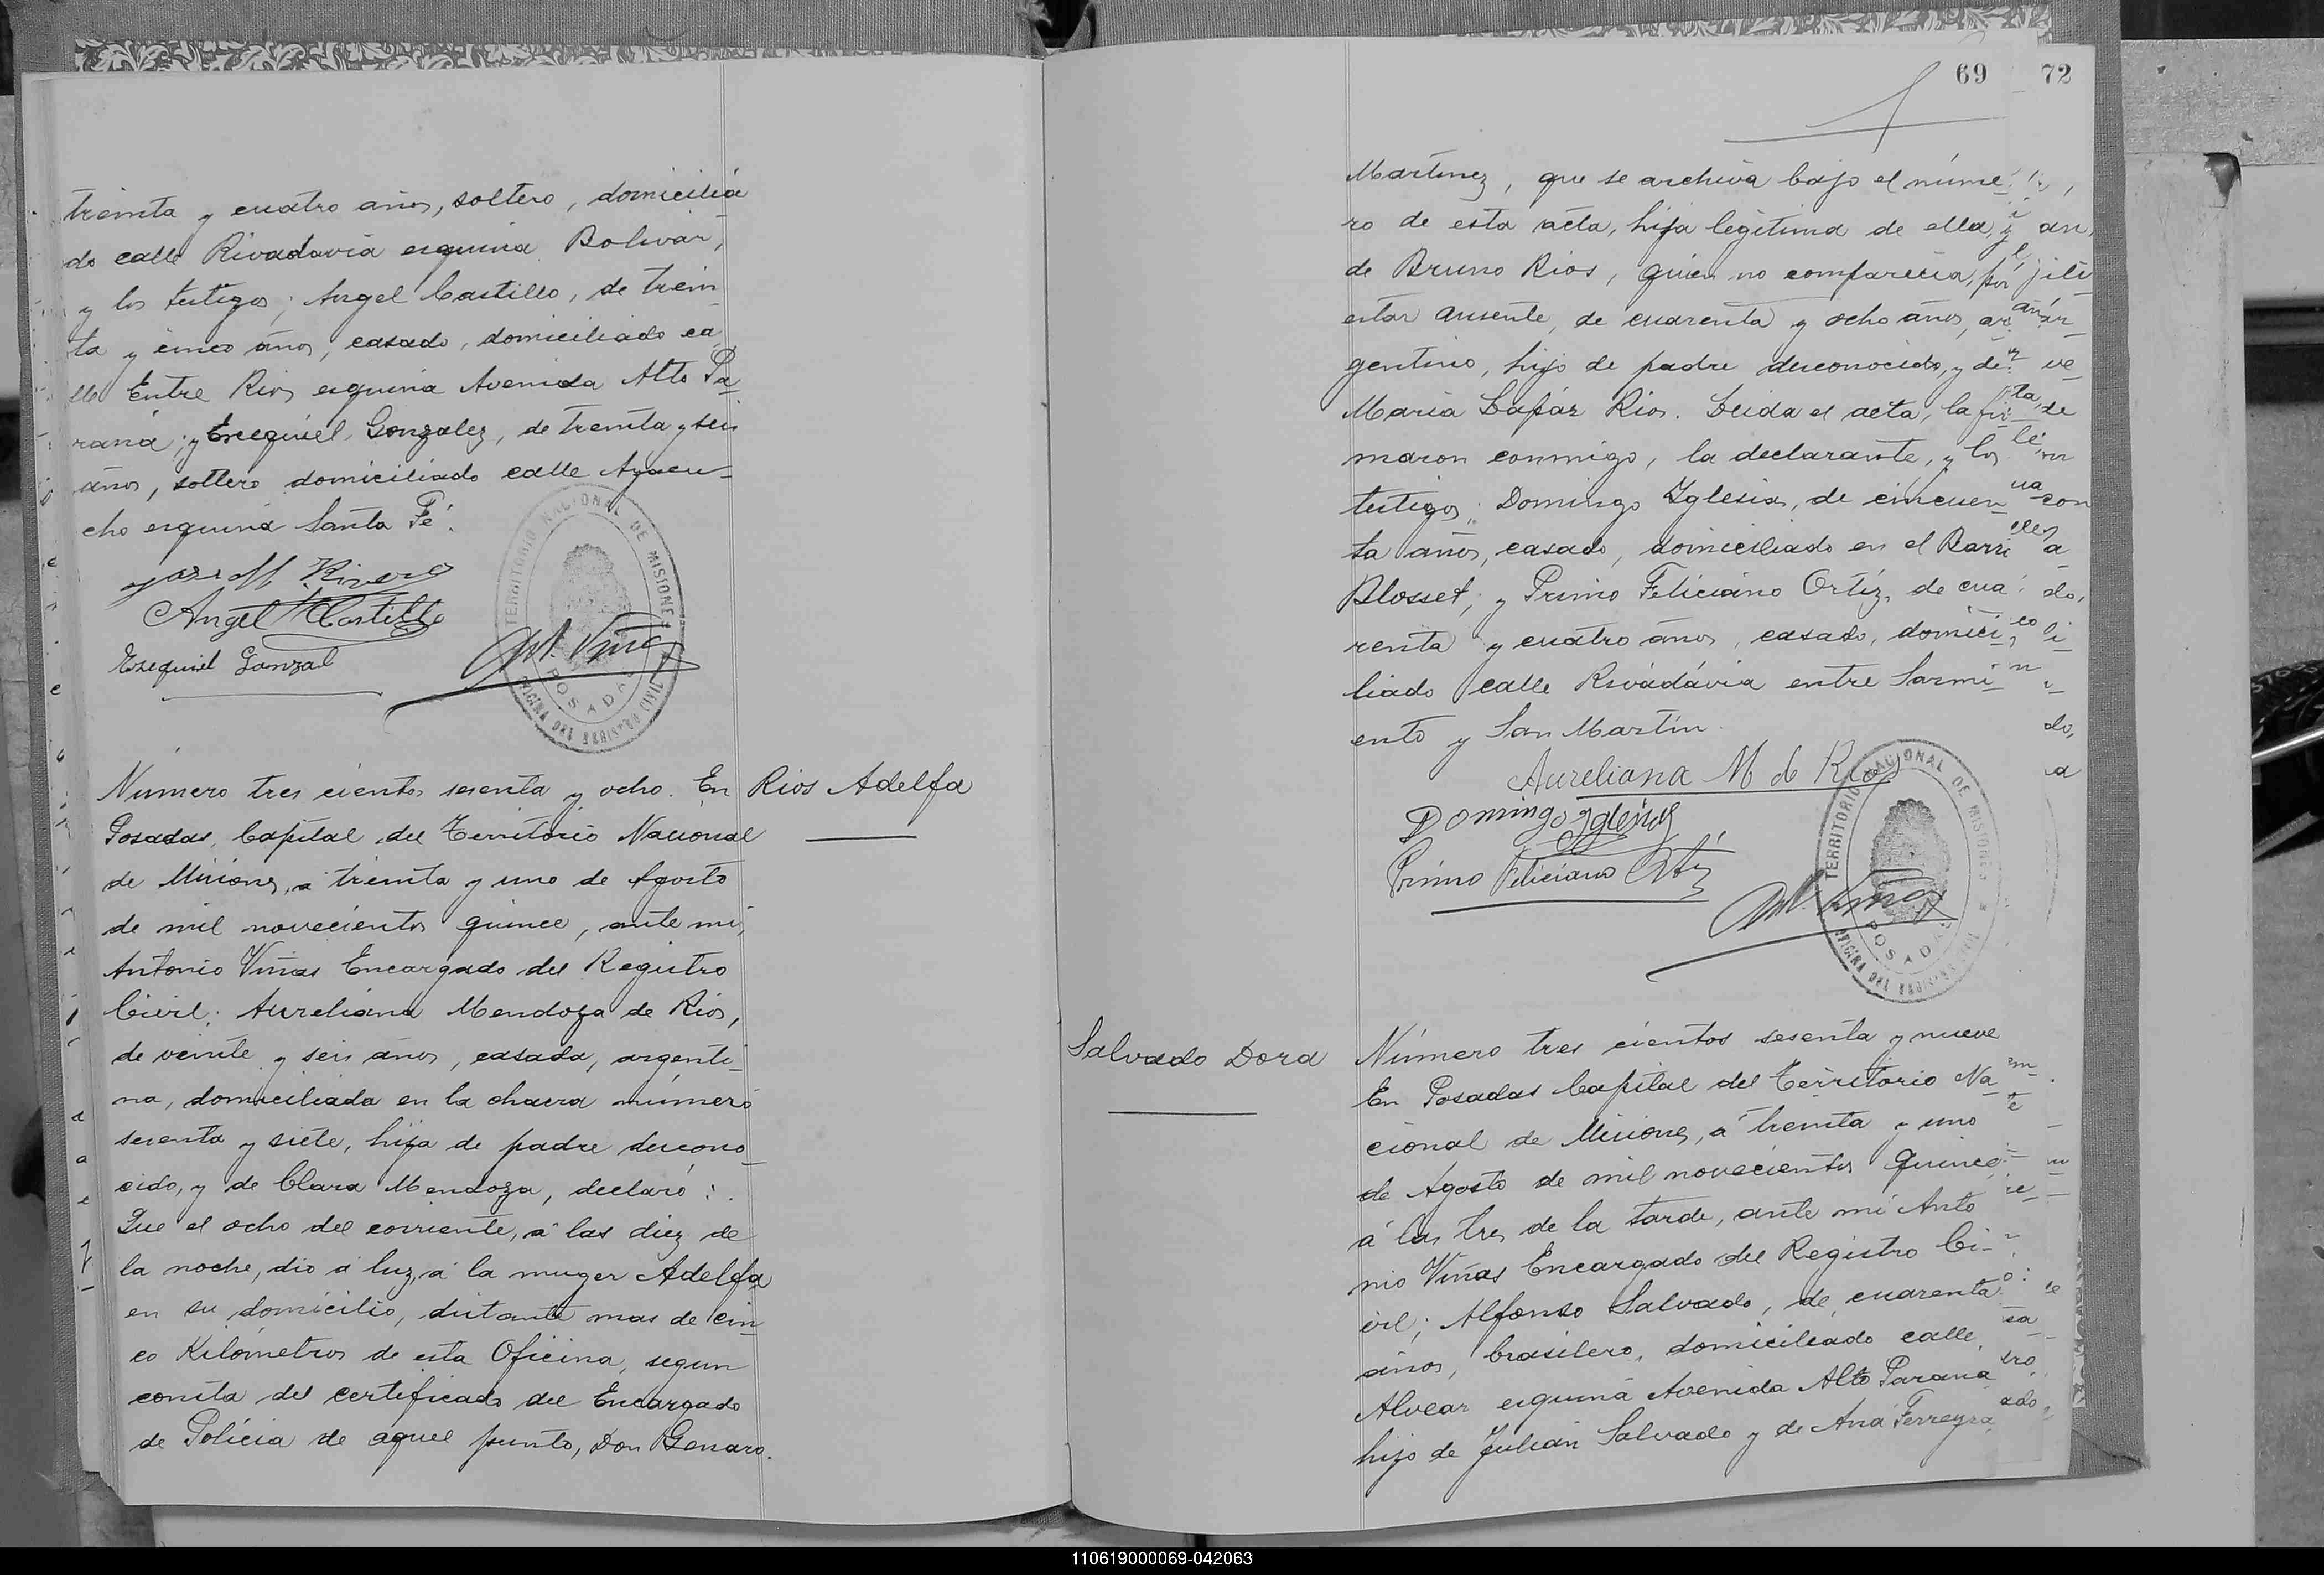 treinta y cuatro años, soltero, domicilia
do calle Rivadavia esquina Bolivar,
y los testigos; Angel Castillo, de trein
ta y cinco años, casado, domiciliado ca
lle Entre Rios esquina Avenida Alto Pa
raná; y Ezequiel Gonzalez, de treinta y seis
años, soltero domiciliado calle Ayacu
cho esquina Santa Fé.
Rivero
Angel Castillo
Ezequiel Gonzal
Ant. Viñas
TERRITORIO NACIONAL DE MISIONES
OFICINA DEL REGISTRO CIVIL
POSADAS
Rios Adelfa
Número tres cientos sesenta y ocho. En
Posadas, Capital del Territorio Nacional
de Misiones, a treinta y uno de Agosto
de mil novecientos quince, ante mi,
Antonio Viñas Encargado del Registro
Civil; Aureliana Mendoza de Rios,
de veinte y seis años, casada, argenti
na, domiciliada en la chacra número
sesenta y siete, hija de padre descono
cido, y de Clara Mendoza, declaró:
Que el ocho del corriente, a las diez de
la noche, dio a luz, a la muger Adelfa
en su domicilio, distante mas de cin
co Kilómetros de esta Oficina, segun
consta del certificado del Encargado
de Policia de aquel punto, Don Genaro
69 72
Martinez, que se archiva bajo el núme
ro de esta acta, hija legitima de ella, y
de Bruno Rios, quien no comparecia, por
estar ausente, de cuarenta y ocho años, ar
gentino, hijo de padre desconocido, y de
Maria Rios. Leida el acta, la fir
maron conmigo, la declarante, y los
testigos; Domingo Yglesias, de cincuen
ta años, casado, domiciliado en el Barrio
Blosset; y Primo Feliciano Ortiz, de cua
renta y cuatro años, casado, domici
liado calle Rivadávia entre Sarmi
ento y San Martin.
Aureliana M de Rios
Domingo Yglesias
Primo Feliciano Ortiz
Ant. Viñas
TERRITORIO NACIONAL DE MISIONES
OFICINA DEL REGISTRO CIVIL
POSADAS
Salvado Dora
Número tres cientos sesenta y nueve
En Posadas Capital del Territorio Na
cional de Misiones, a treinta y uno
de Agosto de mil novecientos quince
á las tres de la tarde, ante mi Anto
nio Viñas Encargado del Registro Ci-
vil; Alfonso Salvado, de cuarenta
años, brasilero, domiciliado calle
Alvear esquina Avenida Alto Parana
hijo de Julián Salvado y de Ana Ferreyra
110619000069-042063